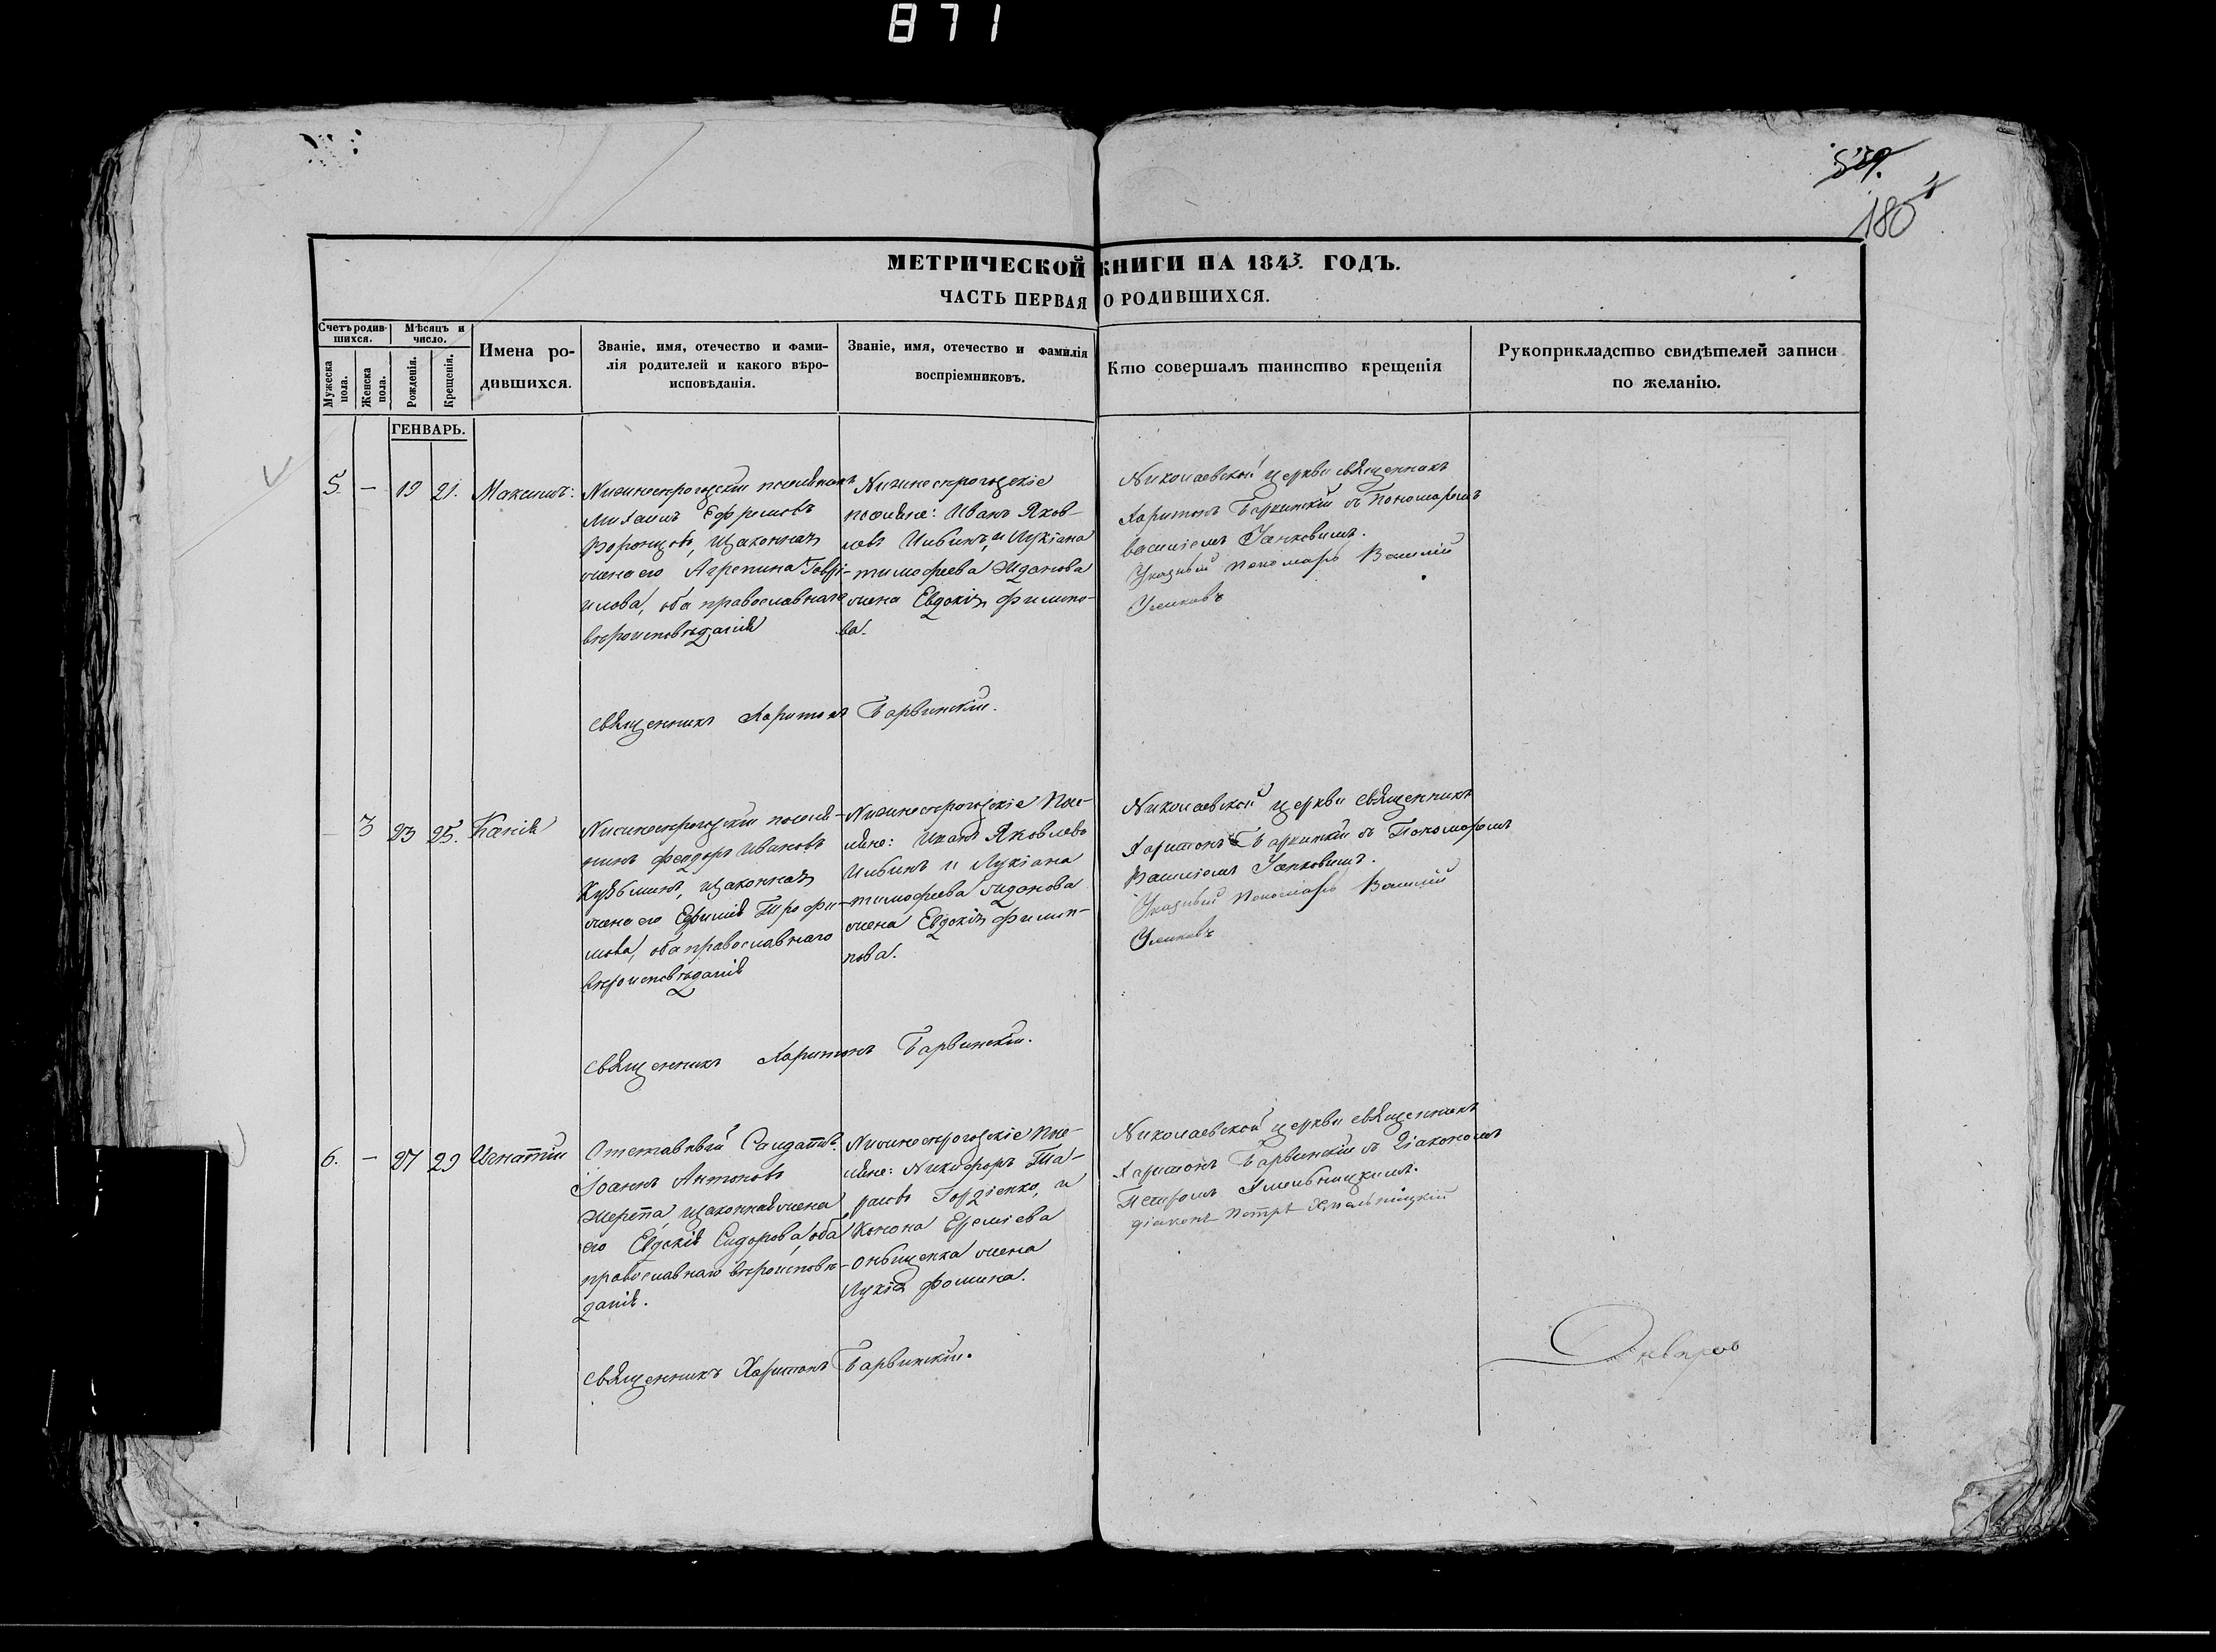 871
539.
180
МЕТРИЧЕСКОЙ КНИГИ НА 1843. ГОДЪ.
ЧАСТЬ ПЕРВАЯ О РОДИВШИХСЯ.
Счетъ родившихся.
Мѣсяцъ и число.
Мужеска пола.
Женска пола.
Рожденія.
Крещенія.
Имена родившихся.
Званіе, имя, отечество и фамилія родителей и какого вѣроисповѣданія.
Званіе, имя, отечество и фамилія воспріемниковъ.
Кто совершалъ таинство крещенія
Рукоприкладство свидѣтелей записи по желанію.
ГЕНВАРЬ.
5. — 19 21. Максимъ:
Нижнесерогозскій поселянинъ
Михаилъ Ефремовъ
Воронцовъ, изаконная
жена его Агрепина Гаврі-
илова, оба православнаго
вѣроисповѣданія
Нижнесерогозскіе
поселяне: Иванъ Яков-
левъ Ильинъ, и Лукіана
тимофеева Жданова
жена Евдокія филипо-
ва.
Николаевской церкви священникъ
Харитонъ Барвинскій съ Пономаремъ
василіемъ
Указный пономарь Василій
священникъ Харитонъ Барвинскій.
3 23 25. Ксенія
Нижнесерогозскій поселя-
нинъ феодоръ Ивановъ
Кузьминъ, изаконная
жена его Ефимія Трофи-
мова, оба православнаго
вѣроисповѣданія
Нижнесерогозскіе Посе-
ляне: Иванъ Яковлевъ
Ильинъ и Лукіана
тимофеева жданова
жена Евдокія филип-
пова.
Николаевской церкви священникъ
Харитонъ Барвинскій съ Пономаремъ
Василіемъ
Указный пономарь Василій
священникъ Харитонъ Барвинскій.
6. — 27 29 Игнатій
Отставный Салдатъ
Іоаннъ Антоновъ
изаконная жена
его Евдокія Сидорова, оба
православнаго вѣроисповѣ-
данія.
Нижнесерогозскіе Посе-
ляне: Никифоръ Та-
расовъ Гордіенко, и
Конона Ереміева
жена
Лукія фомина.
Николаевской церкви священникъ
Харитонъ Барвинскій съ Діакономъ
Петромъ Хмельницкимъ.
діаконъ Петръ Хмельницкій
священникъ Харитонъ Барвинскій.